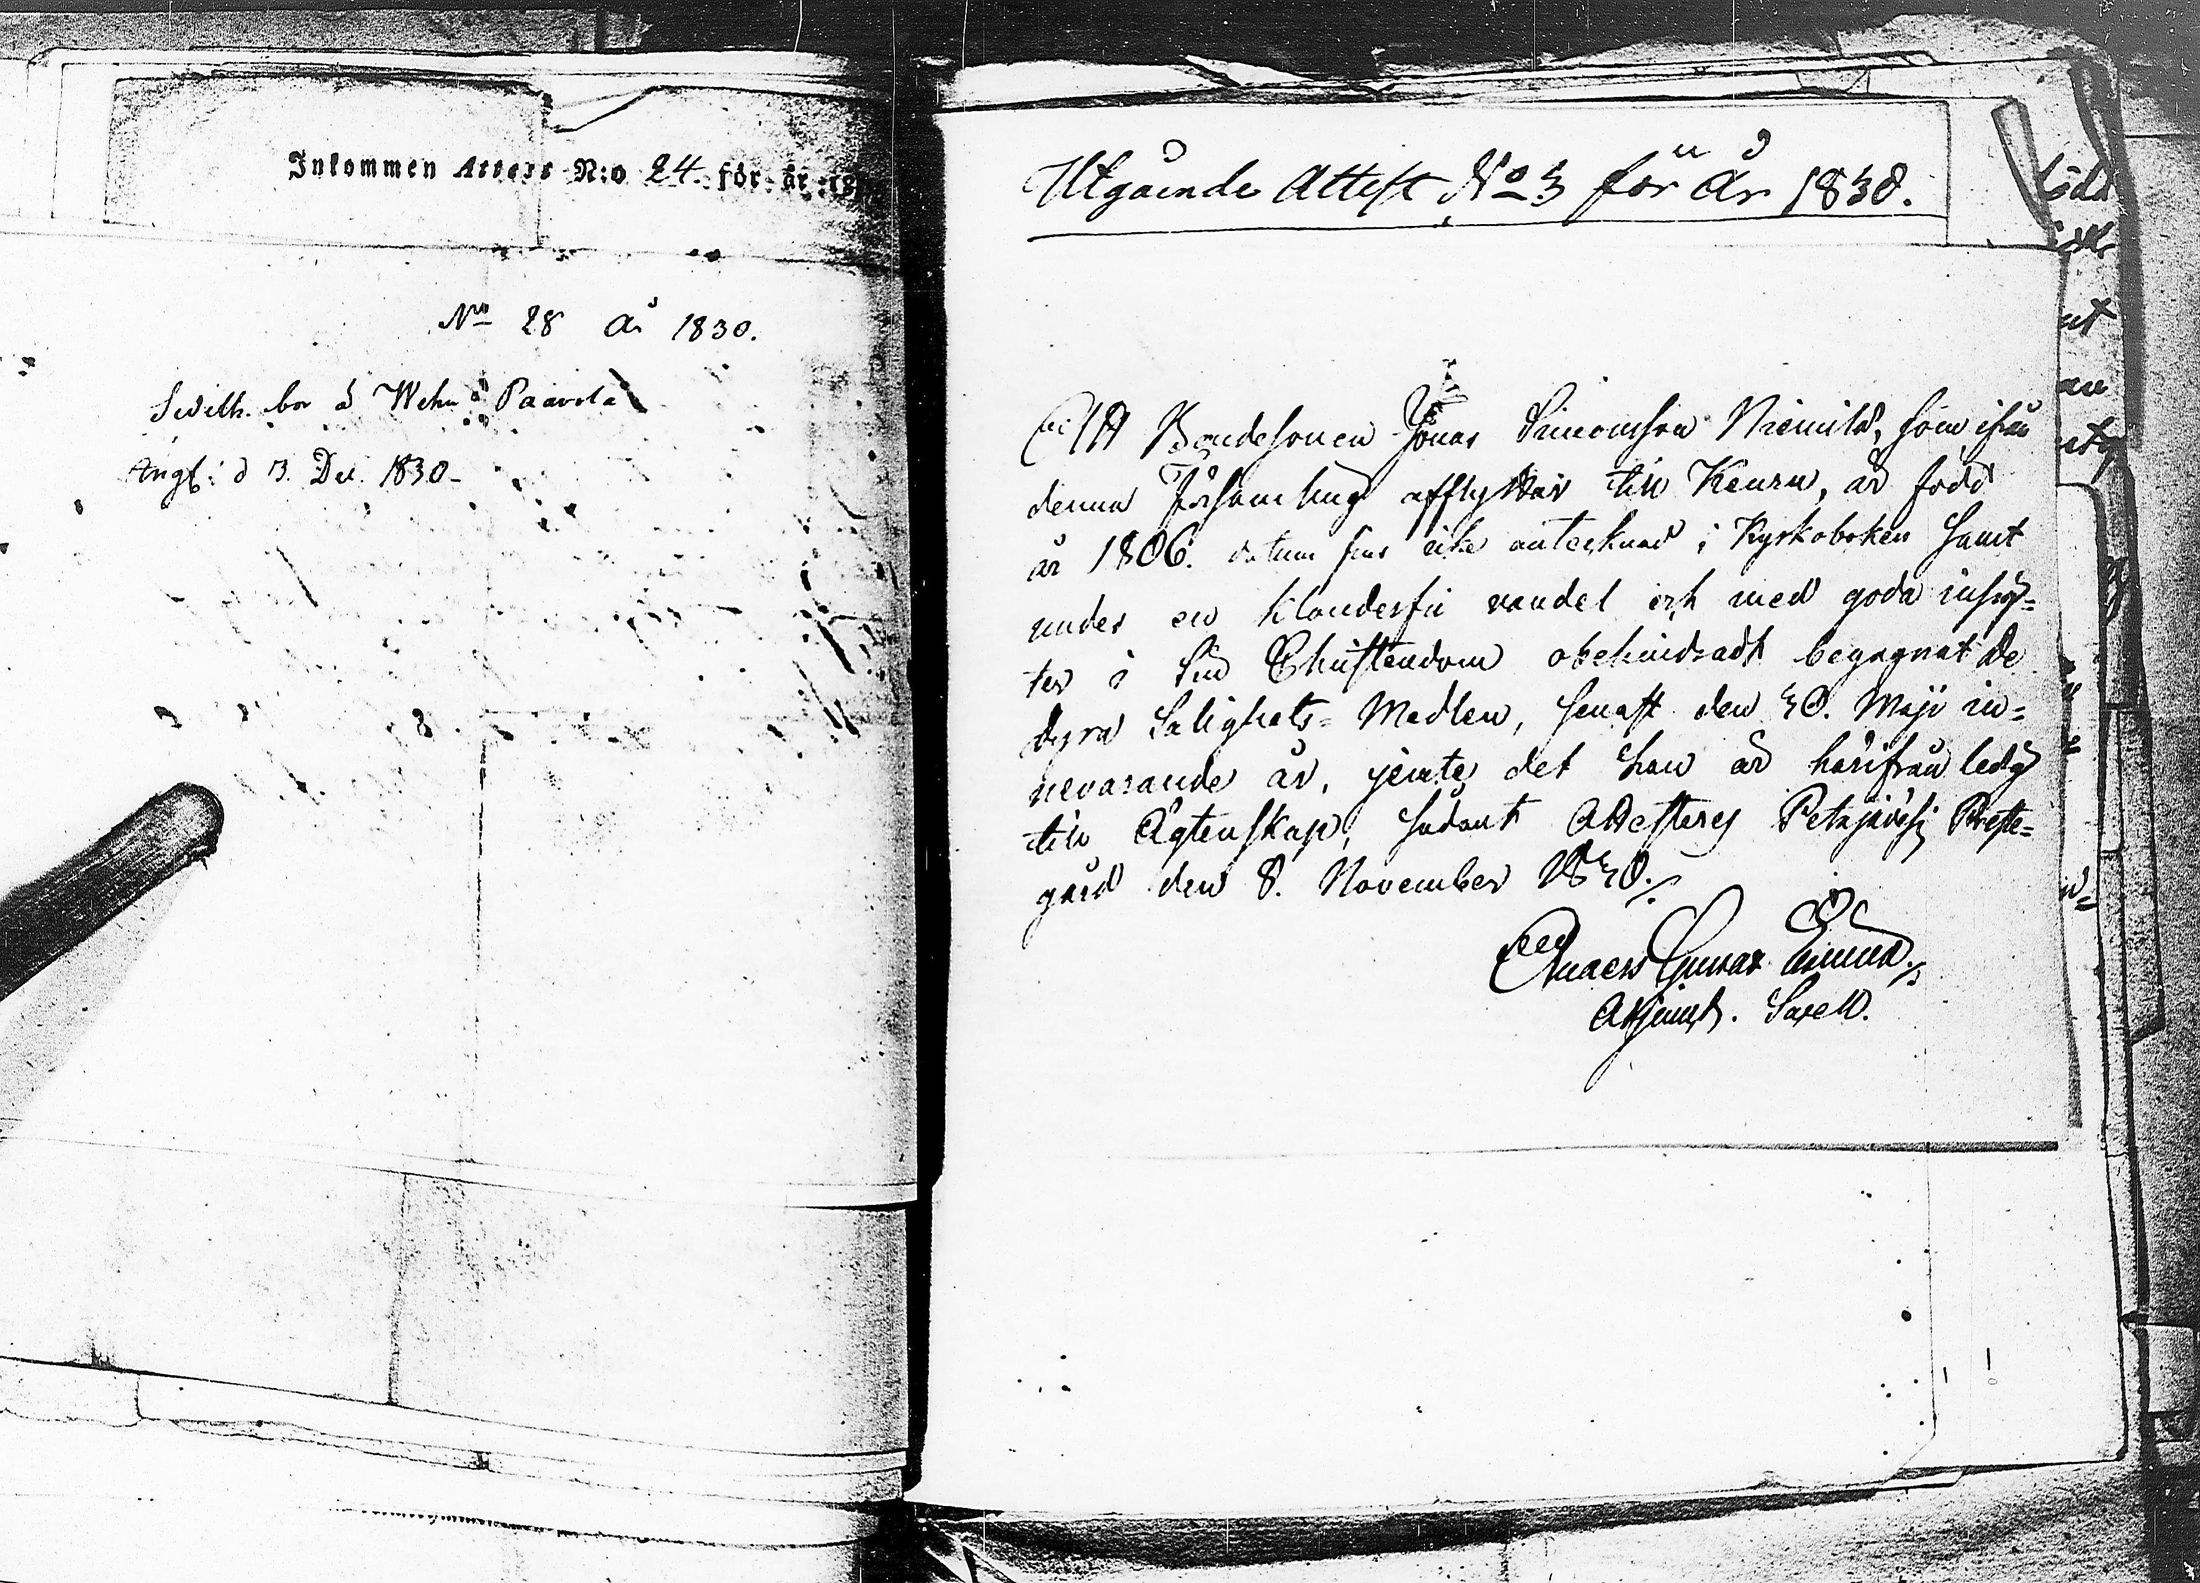 Inkommen Attest N:o 24. för år 18
No 28 År 1830.
bor å Wehn Paavola
d 3. Dec. 1830
Utgående Attest No 3 för År 1830.
Att Bondesonen Jonas Simonsson Niemilä, som ifrån
denna Församling afflyttar till Keuru, är född
år 1806. datum fins icke antecknad i Kyrkoboken samt
under en klanderfri vandel och med goda insig-
ter i sin Christendom obehindradt begagnat de
dyra Salighets-Medlen, senast den 30. Maji in-
nevarande år, jemte det han är härifrån ledig
till Ägtenskap, sådant Attesteras Petäjävesi Preste-
gård den 8. November 1830.
Anders Gustaf
Adjunct. Sacell.